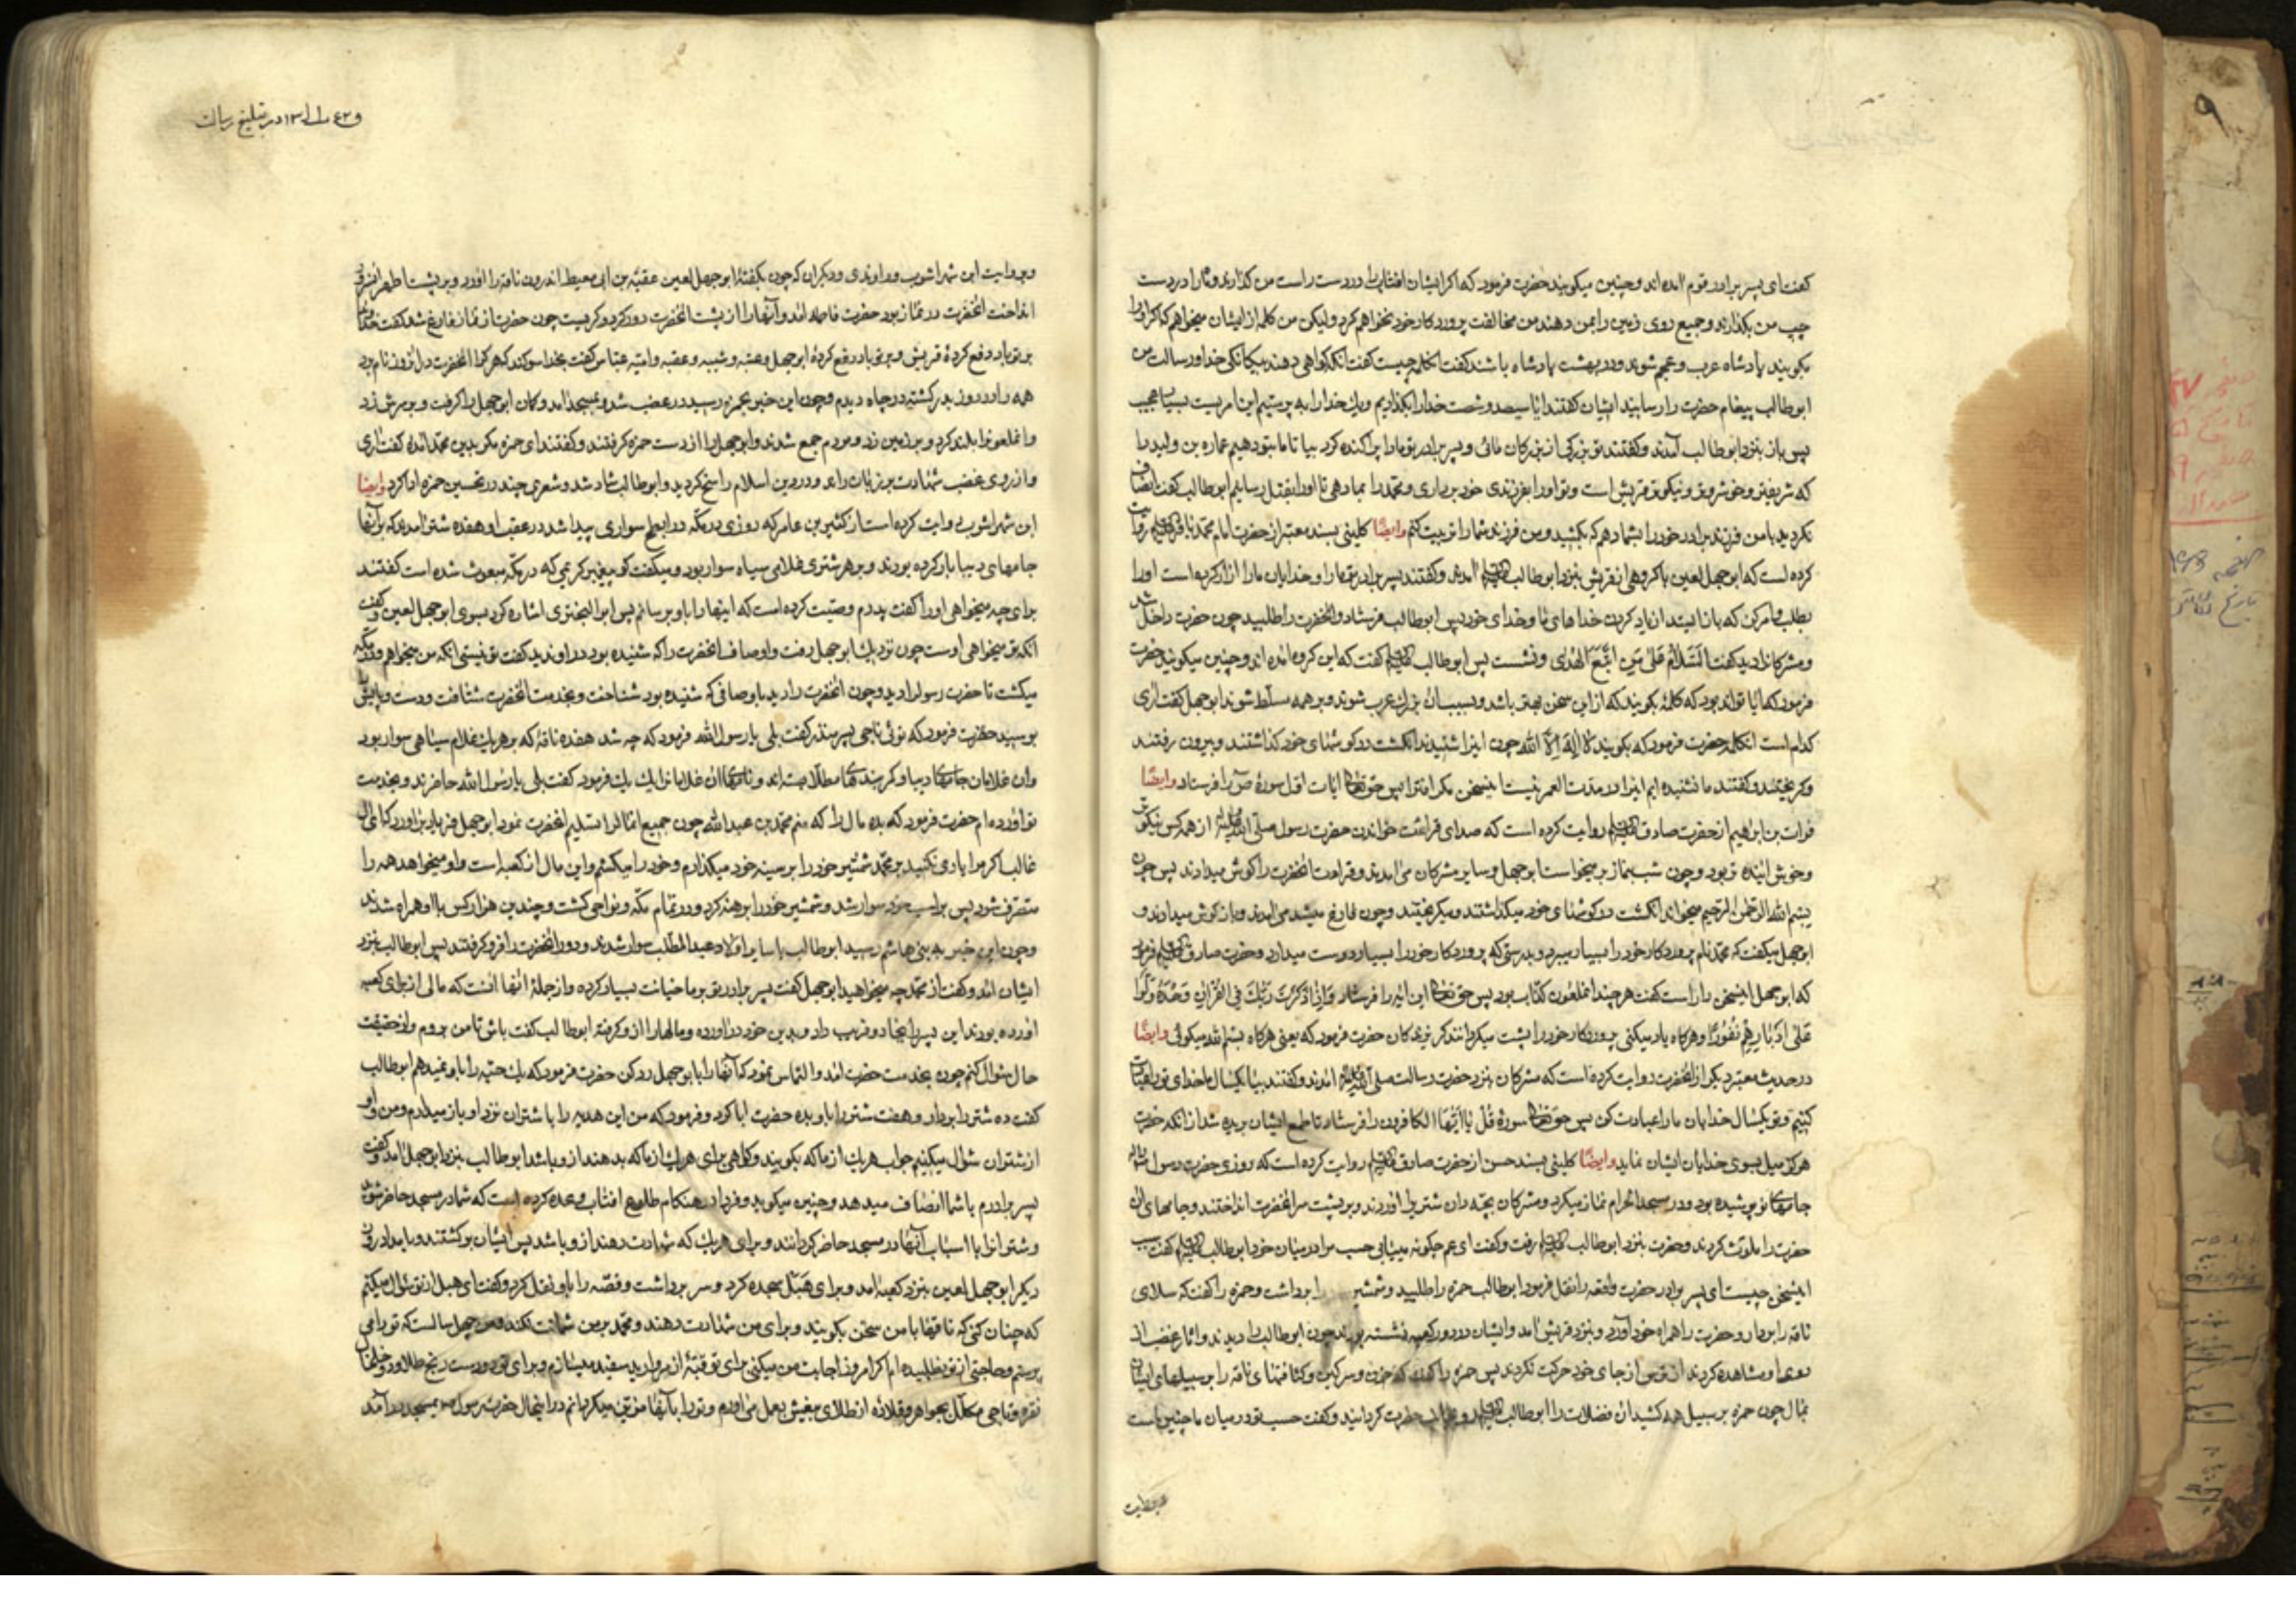 گفت ای پسر برادر قوم آمده اند و چنین میگویند حضرت فرمود که اگر ایشان افتاب را در دست راست من گذارند و ماه را در دست
چپ من بگذارند و جمیع روی زمین را بمن دهند من مخالفت پروردکار خود نخواهم کرد ولیکن من کلمه از ایشان میخواهم که اگر انرا
بگویند پادشاه عرب و عجم شوند و در بهشت پادشاه باشند گفت آنکلمه چیست گفت آنکه گواهی دهند بیکانکی خدا و رسالت من
ابوطالب پیغام حضرت را رسانید ایشان گفتند ایا سیصد و شصت خدا را بگذاریم و یک خدا را بپرستیم این امریست بسیار عجیب
پس باز بنزد ابوطالب آمدند و گفتند تو بزرکی از بزرکان مائی و پسر برادر تو ما را پراکنده کرد بیا تا ما بتو دهیم عماره بن ولید را
که شریفتر و خوشروتر و نیکوتر قریش است و تو او را بفرزندی خود برداری و محمد را بما دهی تا او را بقتل رسانیم ابوطالب گفت انصاف
نکردید با من فرزند برادر خود را بشما دهم که بکشید و من فرزند شما را تربیت کنم وایضًا کلینی بسند معتبر از حضرت امام محمد باقر روایت
کرده است که ابوجهل لعین با گروهی از قریش بنزد ابوطالب آمدند و گفتند پسر برادر تو ما را و خدایان ما را ازار کرده است او را
بطلب و امر کن که باز ایستد از یاد کردن خداهای ما و خدای خود پس ابوطالب فرستاد و آنحضرت را طلبید چون حضرت داخل شد
و مشرکانرا دید گفت السَّلامُ عَلیٰ مَنِ اتَّبَعَ الهُدیٰ و نشست پس ابوطالب گفت که این گروه آمده اند و چنین میگویند حضرت
فرمود که ایا تواند بود که کلمهٔ بگویند که از این سخن بهتر باشد و بسبب ان بزرک عرب شوند و بر همه مسلط شوند ابوجهل گفت اری
کدام است انکلمه حضرت فرمود که بگویند لا اله الا الله چون اینرا شنیدند انگشت در گوشهای خود گذاشتند و بیرون رفتند
و گریختند و گفتند ما نشنیده ایم اینرا در مدت العمر نیست اینسخن مگر افترا پس حق تعالی ایات اول سورهٔ ص را فرستاد وایضًا
فرات بن ابراهیم از حضرت صادق روایت کرده است که صدای قرائت خواندن حضرت رسول از همه کس نیکوتر
و خوش آینده تر بود و چون شب بنماز برمیخواست ابوجهل و سایر مشرکان می آمدند و قراءت آنحضرت را گوش میدادند پس چون
بسم الله الرحمن الرحیم میخواند انگشت در گوشهای خود میگذاشتند و میگریختند و چون فارغ میشد می آمدند و باز گوش میدادند و
ابوجهل میگفت که محمد نام پروردکار خود را بسیار میبرد و بدرستی که پروردکار خود را بسیار دوست میدارد و حضرت صادق فرمود
که ابوجهل اینسخن را راست گفت هر چند آنملعون کذاب بود پس حق تعالی این ایه را فرستاد وَاِذا ذَکَرتَ رَبَّکَ فِی القُرآنِ وَحْدَهُ وَلَّوا
عَلیٰ اَدْبٰارِهِمْ نُفُورًا و هرکاه یاد میکنی پروردکار خود را پشت میگردانند گریزندکان حضرت فرمود که یعنی هرکاه بسم الله میگوئی وایضًا
در حدیث معتبر دیگر از آنحضرت روایت کرده است که مشرکان بنزد حضرت رسالت آمدند و گفتند بیا یکسال ما خدای تو را عبادت
کنیم و تو یکسال خدایان ما را عبادت کن پس حق تعالی سورهٔ قُل یا اَیُّهَا الکافرون را فرستاد تا طمع ایشان بریده شد از انکه حضرت
هرگز میل بسوی خدایان ایشان نماید وایضًا کلینی بسند حسن از حضرت صادق روایت کرده است که روزی حضرت رسول
جامهای نو پوشیده بود و در مسجد الحرام نماز میکرد و مشرکان بچه دان شتر را آوردند و بر پشت آنحضرت انداختند و جامهای ان
حضرت را ملوث کردند و حضرت بنزد ابوطالب رفت و گفت ای عم چگونه میبینی حسب مرا در میان خود ابوطالب گفت سبب
اینسخن چیست ای پسر برادر حضرت واقعه را نقل فرمود ابوطالب حمزه را طلبید و شمشیر را برداشت و حمزه را گفت که سلای
ناقه را بردار و حضرت را همراه خود آورد و بنزد قریش آمد و ایشان در دور کعبه نشسته بودند چون ابوطالب را دیدند و اثار غضب از
روی او مشاهده کردند از ترس از جای خود حرکت نکردند پس حمزه را گفت که خون و سرگین و کثافتهای ناقه را بر سبیلهای ایشان
بمال چون حمزه بر سبیل همه کشید ان فضلات را ابوطالب رو بجانب حضرت گردانید و گفت حسب تو در میان ما چنین است
و بروایت
در تبلیغ رسالت
و بروایت ابن شهراشوب و راوندی و دیگران که چون بگفتهٔ ابوجهل لعین عقبة بن ابی معیط اندرون ناقه را آورد و بر پشت اطهر آنسرور
انداخت آنحضرت در نماز بود حضرت فاطمه آمد و آنها را از پشت آنحضرت دور کرد و گریست چون حضرت از نماز فارغ شد گفت خداوندا
بر تو باد دفع کردهٔ قریش و بر تو باد دفع کردهٔ ابوجهل و عتبه و شیبه و عقبه و امیه عباس گفت بخدا سوگند که هر کرا آنحضرت در ان روز نام برد
همه را در روز بدر کشته در چاه دیدم و چون این خبر بحمزه رسید در غضب شد و بمسجد آمد و کمان ابوجهل را گرفت و بر سرش زد
و آنملعونرا بلند کرد و بر زمین زد و مردم جمع شدند و ابوجهل را از دست حمزه گرفتند و گفتند ای حمزه مگر بدین محمد آمدهٔ گفت اری
و از روی غضب شهادت بر زبان راند و در دین اسلام راسخ گردید و ابوطالب شاد شد و شعری چند در تحسین حمزه ادا کرد وایضًا
ابن شهراشوب روایت کرده است از کثیر بن عامر که روزی در مکه در ابطح سواری پیدا شد در عقب او هفده شتر آمدند که بر آنها
جامهای دیبا بار کرده بودند و بر هر شتری غلامی سیاه سوار بود و میگفت کو پیغمبر کریمی که در مکه مبعوث شده است گفتند
برای چه میخواهی او را گفت پدرم وصیت کرده است که اینها را باو برسانم پس ابو البختری اشاره کرد بسوی ابوجهل لعین و گفت
انکه تو میخواهی اوست چون نزدیک ابوجهل رفت و اوصاف آنحضرت را که شنیده بود در او ندید گفت تو نیستی انکه من میخواهم و در مکه
میگشت تا حضرت رسول را دید و چون آنحضرت را دید باوصافی که شنیده بود شناخت و بخدمت آنحضرت شتافت و دست و پایش را
بوسید حضرت فرمود که توئی ناجی پسر منذر گفت بلی یا رسول الله فرمود که چه شد هفده ناقهٔ که بر هر یک غلام سیاهی سوار بود
و ان غلامان جامهای دیبا و کمربندهای مطلا بسته اند و نامهای ان غلامانرا یک یک فرمود گفت بلی یا رسول الله حاضرند و بخدمت
تو اورده ام حضرت فرمود که بده مال را که منم محمد بن عبد الله چون جمیع امالرا تسلیم آنحضرت نمود ابوجهل فریاد براورد که ای ال
غالب اگر مرا یاری نکنید بر محمد شمشیر خود را بر سینه خود میگذارم و خود را میکشم و این مال از کعبه است و او میخواهد همه را
متصرف شود پس بر اسب خود سوار شد و شمشیر خود را برهنه کرد و در تمام مکه و نواحی گشت و چندین هزار کس با او همراه شدند
و چون این خبر به بنی هاشم رسید ابوطالب با سایر اولاد عبد المطلب سوار شدند و دور آنحضرت را فرو گرفتند پس ابوطالب بنزد
ایشان آمد و گفت از محمد چه میخواهید ابوجهل گفت پسر برادر تو بر ما خیانت بسیار کرده و از جملهٔ آنها آنست که مالی از برای کعبه
آورده بودند این پسر را بجادو فریب داد و بدین خود دراورده و مالها را از او گرفته ابوطالب گفت باش تا من بروم و از حقیقت
حال سوال کنم چون بخدمت حضرت آمد و التماس نمود که آنها را بابوجهل رد کن حضرت فرمود که یک حبه را باو نمیدهم ابوطالب
گفت ده شتر را بردار و هفت شتر را باو بده حضرت ابا کرد و فرمود که من این هدیه را با شتران نزد او باز میدارم و من و او
از شتران سوال میکنیم جواب هر یک از ما که بگویند و گواهی برای هر یک از ما که بدهند از او باشد ابوطالب بنزد ابوجهل آمد و گفت
پسر برادرم با شما انصاف میدهد و چنین میگوید و فردا در هنکام طلوع افتاب وعده کرده است که شما در مسجد حاضر شوید
و شترانرا با اسباب آنها در مسجد حاضر گردانند و برای هر یک که شهادت دهند از او باشد پس ایشان برگشتند و بامداد روز
دیگر ابوجهل لعین بنزد کعبه آمد و برای هبل سجده کرد و سر برداشت و قصه را باو نقل کرد و گفت ای هبل از تو سوال میکنم
که چنان کنی که ناقها با من سخن بگویند و برای من شهادت دهند و محمد بر من شماتت نکند و من چهل سالست که تو را می
پرستم و حاجتی از تو نطلبیده ام اگر امروز اجابت من میکنی برای تو قبهٔ از مروارید سفید میسازم و برای تو دو دست رنج طلا و دو خلخال
نقره و تاجی مکلل بجواهر و قلاده از طلای بیغش بعمل می اورم و تو را بآنها مزین میگردانم در اینحال حضرت رسول بمسجد درآمد